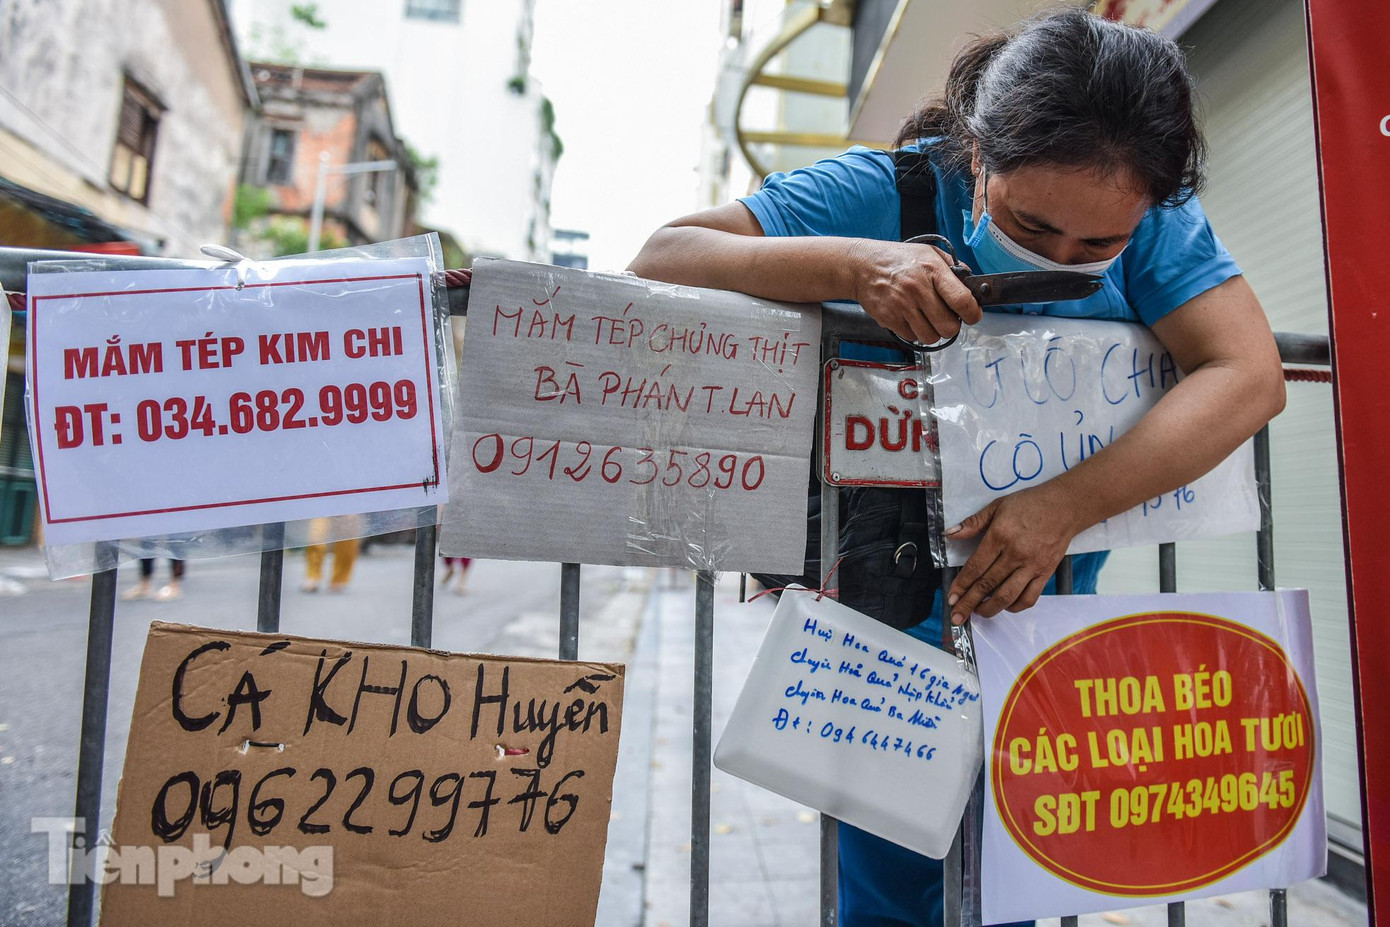 MẮM TÉP KIM CHI
ĐT: 034.682.9999
MẮM TÉP CHƯNG THỊT
BÀ PHÁN T.LAN
0912635890
DỪN
CÔ ỦN
CÁ KHO Huyền
0962299776
Huệ Hoa Quả 16 gia Ngư
chuyên Hoa Quả nhập khẩu
chuyên Hoa Quả Ba Miền
Đt: 0946447466
THOA BÉO
CÁC LOẠI HOA TƯƠI
SĐT 0974349645
Tiền phong